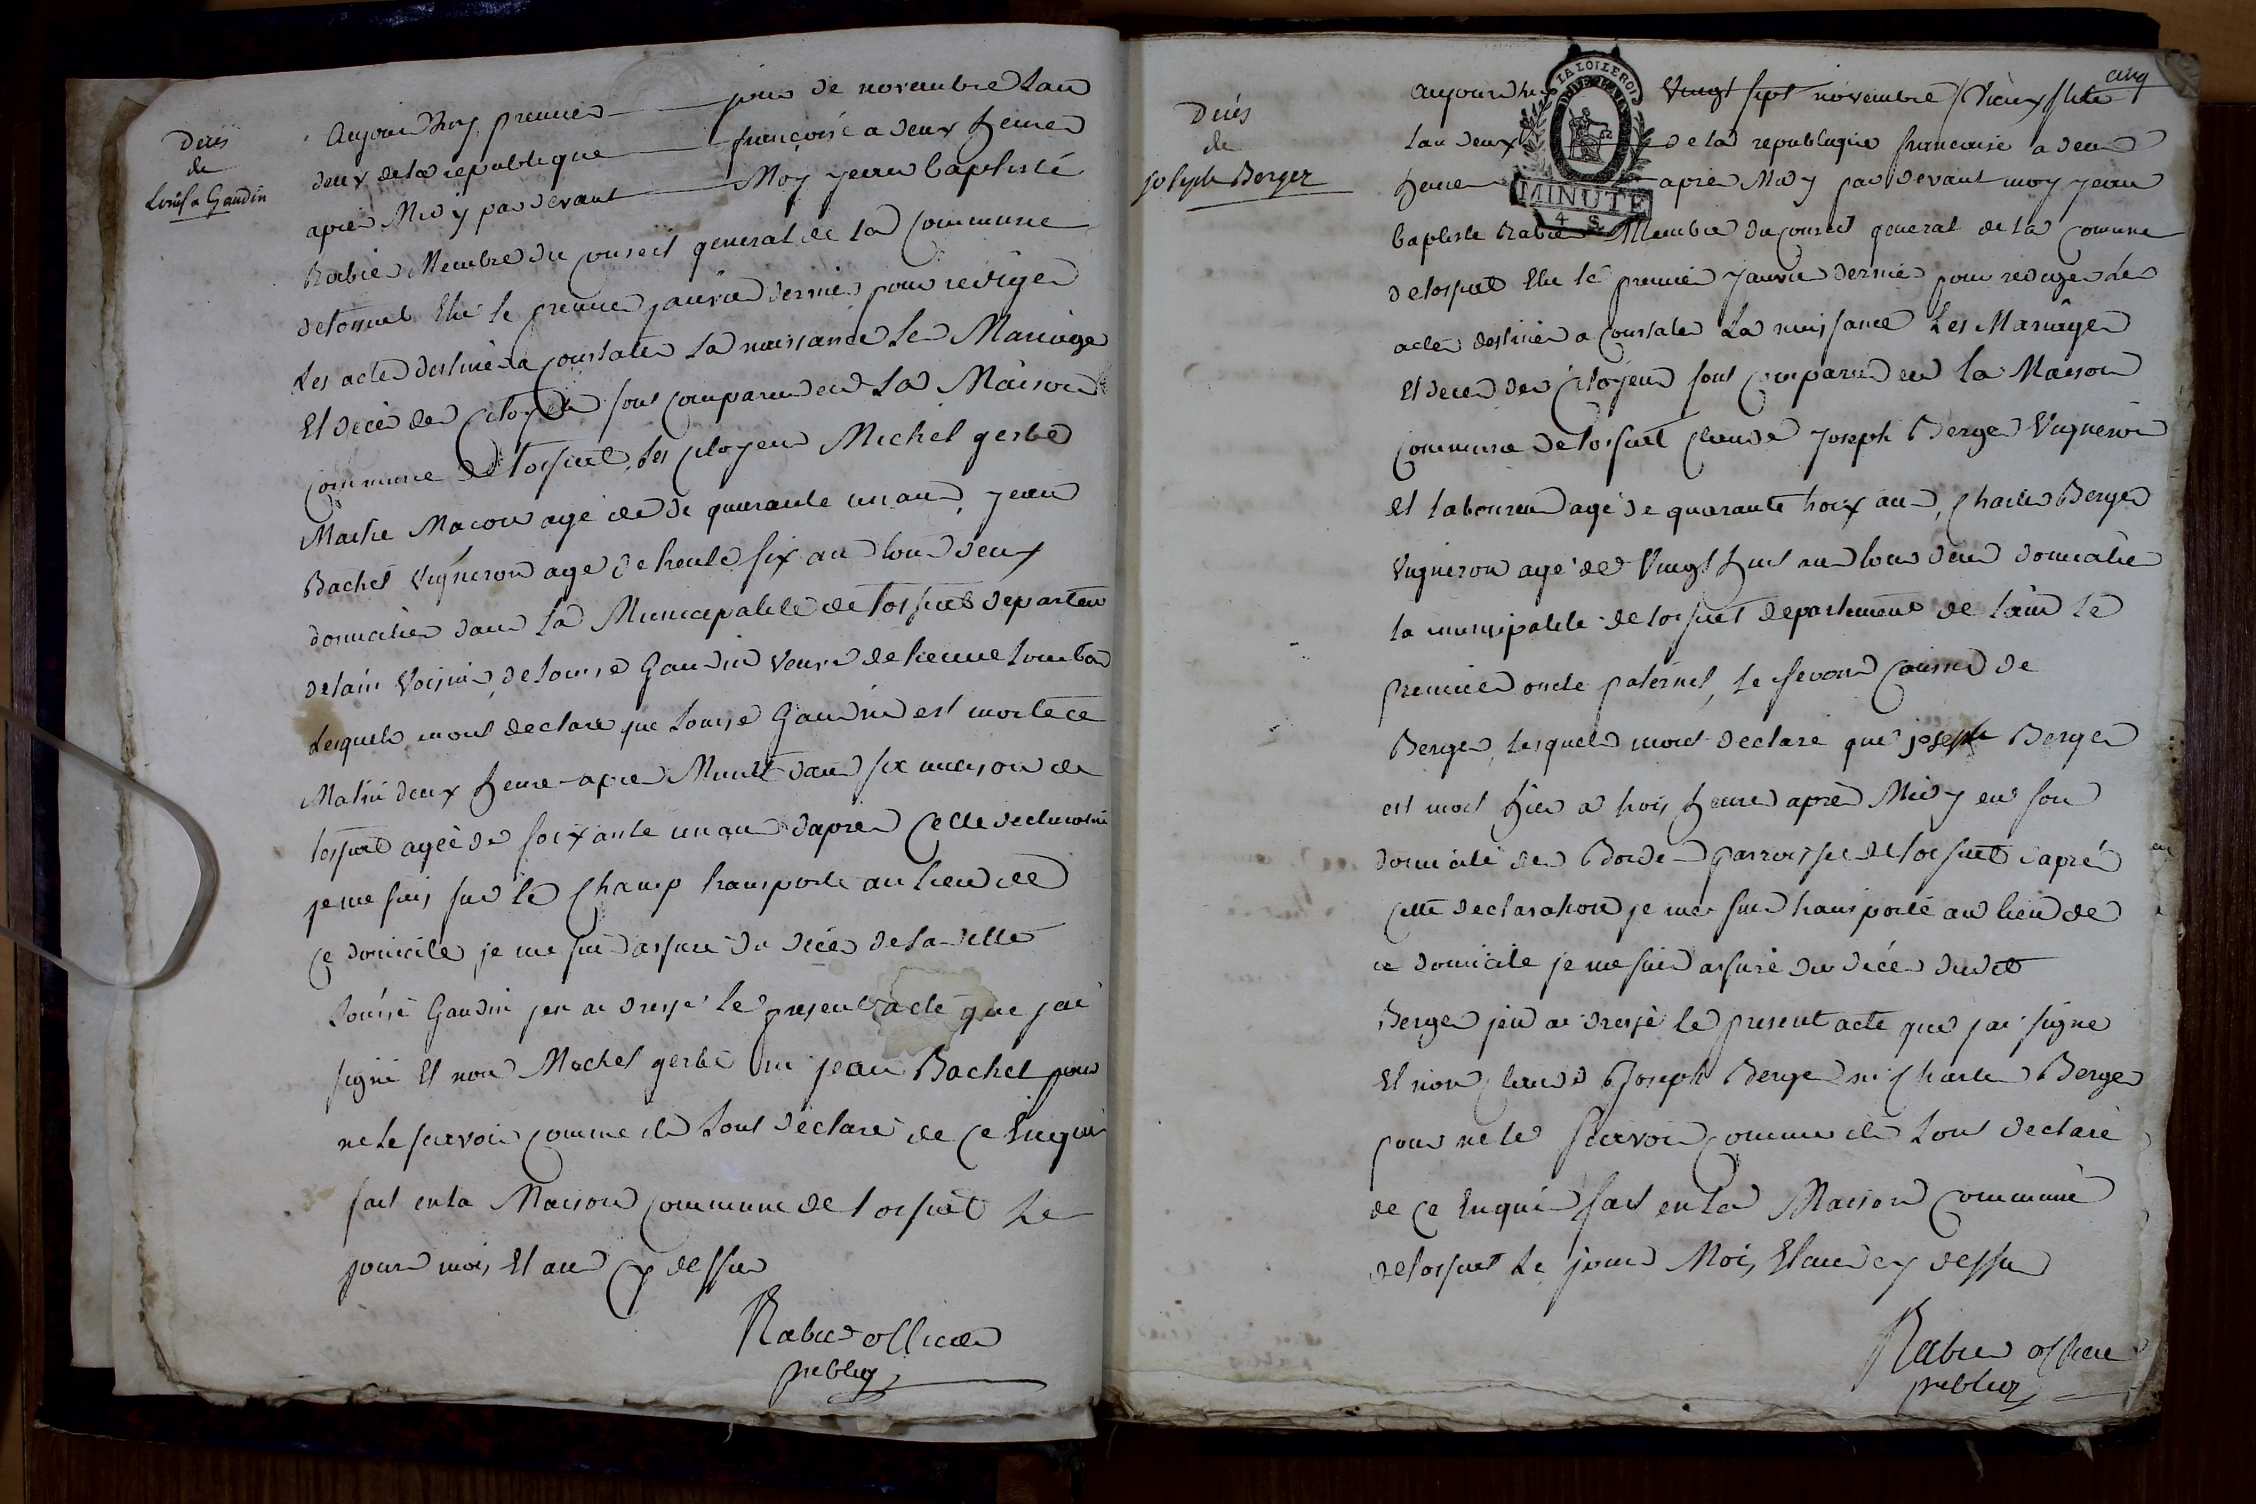 Décès
de
Louise Gaudin
Aujourd'huy premier jour de novembre Lan
deux de la republique françoise a deux heures
apres Midy pardevant Moy jean baptiste
Rabier Membre du conseil general de la Commune
de torsuet Elu le premier janvier dernier pour rediger
Les actes destinés a constater La naissance Les Mariages
Et decès des Citoyens sont comparus en La Maison
commune de torsuet, Les citoyens Michel gerbe
Maitre Macon agé de de quarante un ans, jean
Bachet vigneron agé de trente six ans tous deux
domicilies dans La Municipalité de torsuet departem
de lain voisins de Louise Gaudin veuve de Etienne
Lesquels mont declaré que Louise Gaudin est morte ce
Matin deux heures apres Minuit dans sa maison de
torsuet agée de soixante un ans dapres cette declaration
je me suis sur le Champ transporté au lieu de
ce domicile je me suis assuré du décès de la ditte
Louise Gaudin jen ai dressé le present acte que jai
signé Et non Michel gerbe ni jean Bachet pour
ne le scavoir comme ils Lont déclaré de ce Enquis
fait en la Maison commune de torsuet Le
jours mois Et an cy dessus
Rabier officier
public
cinq
LA LOI LE ROI
MINUTE
4 S.
Décès
de
joseph Berger
aujourdhuy Vingt sept novembre (vieux stile
lan deux de la republique francoise a deux
heures apres Midy pardevant moy jean
baptiste Rabier Membre du conseil general de la comune
de torsuet Elu le premier janvier dernier pour rediger les
actes destinés a constater La naissance Les Mariages
Et decès des citoyens sont comparus en la Maison
commune de torsuet claude joseph Berger Vigneron
et laboureur agé de quarante troix ans, Charles Berger
vigneron agé de Vingt huit ans tous deux domicilies
la municipalité de torsuet departement de lain le
premier oncle paternel, le second cousin de
Berger, Lesquels mont declaré que joseph Berger
est mort hier a trois heures après Midy en son
domicile des Bordes parroisse de torsuet dapré
cette declaration je me suis transporté au lieu de
ce domicile je me suis assuré du décès dudit
Berger jen ai dressé le present acte que jai signé
Et non claude joseph Berger ni Charles Berger
pour ne le scavoir comme ils Lont declaré
de ce Enquis fait en la Maison commune
de torsuet Le jours Mois Et an cy dessus
Rabier officier
public